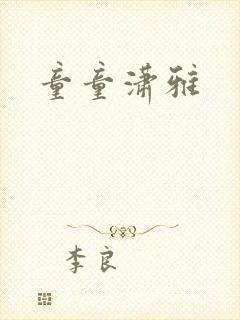 童童潇雅
李良